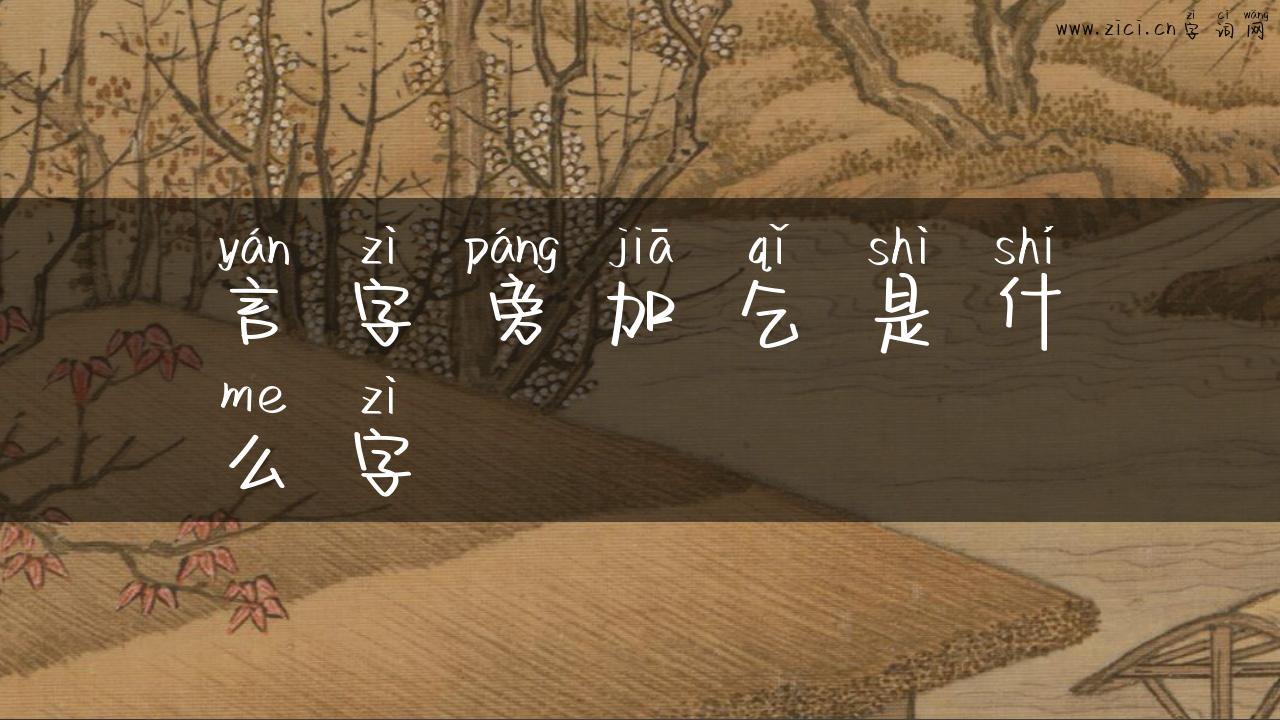 zì cí wǎng
www.zici.cn字词网
yán zì páng jiā qǐ shì shí
言字旁加乞是什
me zì
么字